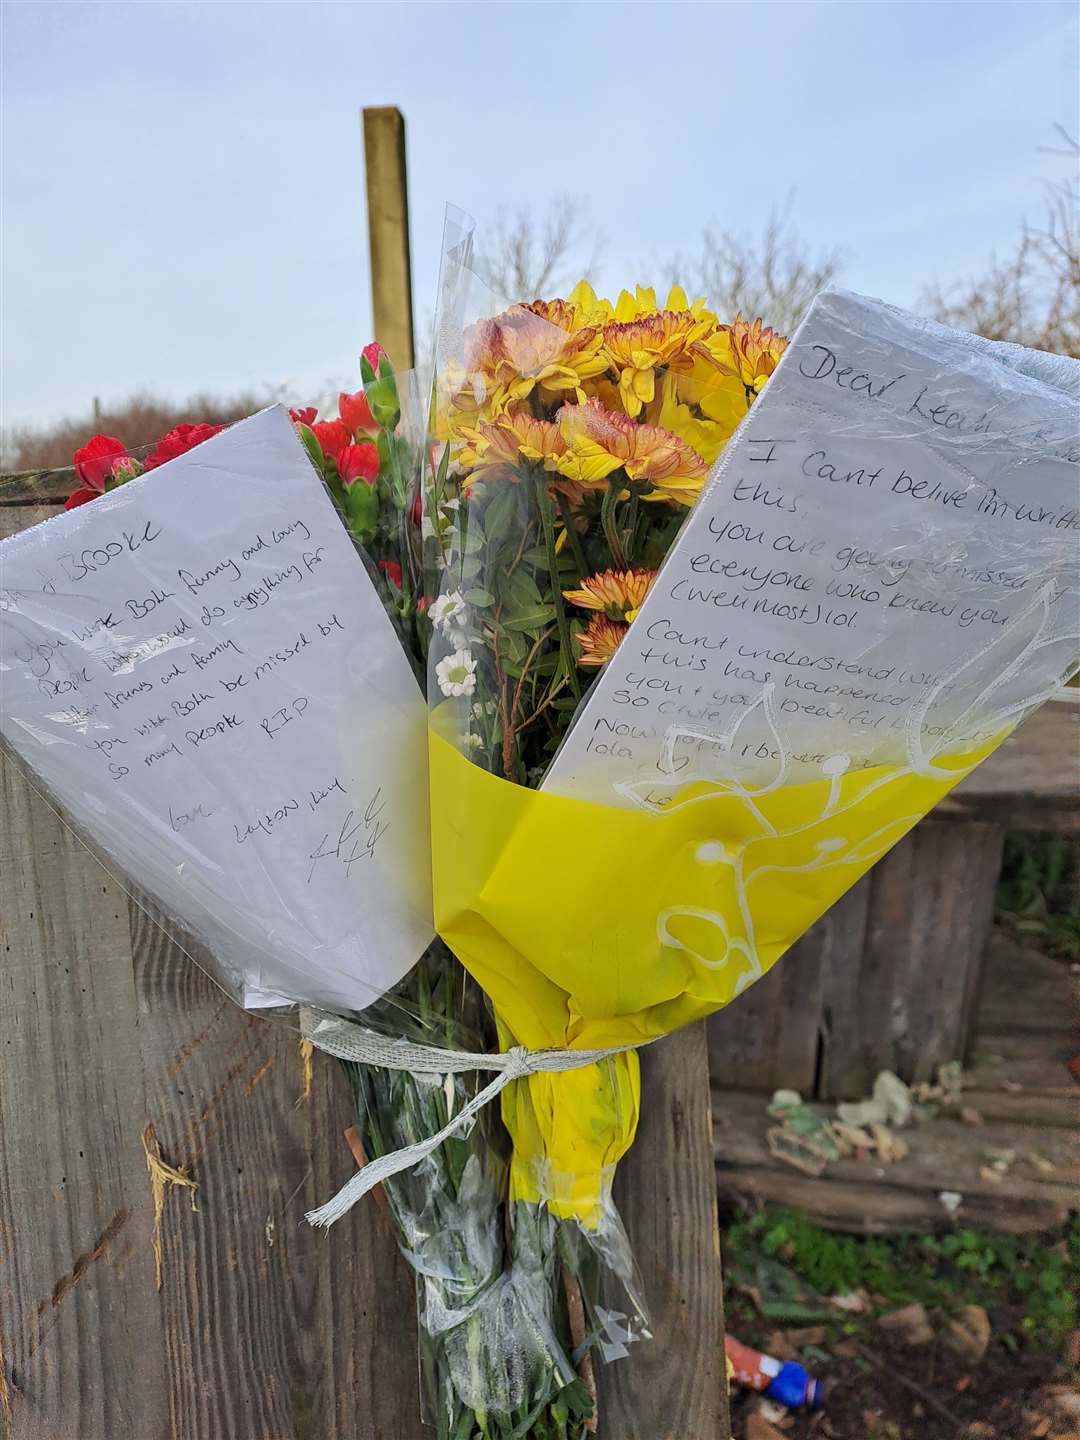 Brooke
you were Both funny and loving
People who would do anything for
their friends and family
you will Both be missed by
so many people RIP
Love
Layton, Lucy
Dear Leah
I Cant belive I'm writ
this.
you are going to missed by
everyone who knew you
(well most) lol.
Cant understand why
this has happened to
you + your beatiful
So Cruel
Now
lola